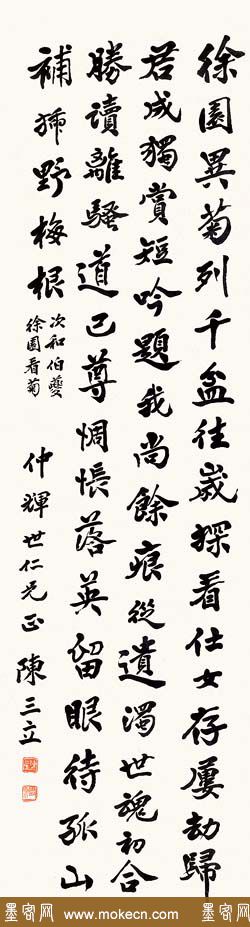 徐園異菊列千盆往歲探看仕女存屢劫歸
君成獨賞短吟題我尚餘痕從遺濁世魂初合
勝讀離騷道已尊惆悵落英留眼待孤山
補掃野梅根
次和伯夔
徐園看菊
仲輝世仁兄正 陳三立
墨客网 www.mokecn.com 墨客网